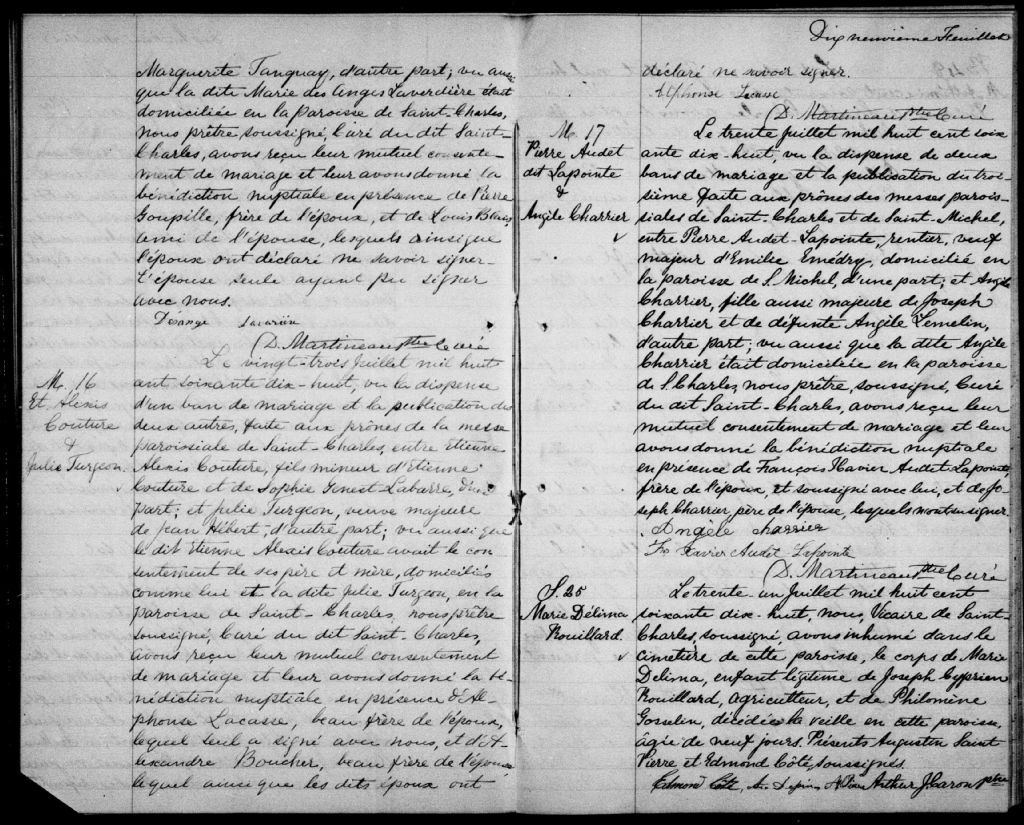 Marguerite Tanguay, d'autre part; vu aussi
que la dite Marie des Anges Laverdière était
domiciliée en la paroisse de Saint-Charles,
nous prêtre soussigné, Curé du dit Saint-
Charles, avons reçu leur mutuel consente-
ment de mariage et leur avons donné la
bénédiction nuptiale en présence de Pierre
Goupille, frère de l'époux, et de Louis
ami de l'épouse, lesquels ainsi que
l'époux ont déclaré ne savoir signer
L'épouse seule ayant pu signer
avec nous.
(D. Martineau ptre Curé
M. 16
Et. Alexis
Couture
&
Julie Turgeon.
Le vingt-trois Juillet mil huit
cent soixante dix-huit, vu la dispense
d'un ban de mariage et la publication des
deux autres, faite aux prônes de la messe
paroissiale de Saint-Charles, entre Etienne
Alexis Couture, fils mineur d'Etienne
Couture et de Sophie Genest-Labarre, d'une
part; et Julie Turgeon, veuve majeure
de Jean Hébert, d'autre part; vu aussi que
le dit Etienne Alexis Couture avait le con
sentement de ses père et mère, domiciliés
comme lui et la dite Julie Turgeon, en la
paroisse de Saint-Charles, nous prêtre
soussigné, Curé du dit Saint-Charles,
avons reçu leur mutuel consentement
de mariage et leur avons donné la bé
nédiction nuptiale en présence d'Al-
phonse Lacasse, beau frère de l'époux,
lequel seul a signé avec nous, et d'A-
lexandre Boucher, beau frère de l'épouse
lequel ainsi que les dits époux ont
Dix neuvième Feuillet
déclaré ne savoir signer.
Alphonse Lacasse
(D. Martineau ptre Curé
M. 17
Pierre Audet
dit Lapointe
&
Angèle Charrier
Le trente juillet mil huit cent soix
ante dix-huit, vu la dispense de deux
bans de mariage et la publication du troi-
sième faite aux prônes des messes parois-
siales de Saint-Charles et de Saint-Michel,
entre Pierre Audet-Lapointe, rentier, veuf
majeur d'Emilie Emédry, domicilié en
la paroisse de S. Michel, d'une part; et Angèle
Charrier, fille aussi majeure de Joseph
Charrier et de défunte Angèle Lemelin,
d'autre part; vu aussi que la dite Angèle
Charrier était domiciliée en la paroisse
de S. Charles, nous prêtre, soussigné, Curé
du dit Saint-Charles, avons reçu leur
mutuel consentement de mariage et leur
avons donné la bénédiction nuptiale
en présence de François Xavier Audet Lapointe
frère de l'époux, et soussigné avec lui, et de Jo
seph Charrier, père de l'épouse, lesquels
Angèle charrier
Frs Xavier Audet Lapointe
(D. Martineau ptre Curé
S. 25
Marie Délima
Rouillard.
Le trente-un Juillet mil huit cent
soixante dix-huit, nous, Vicaire de Saint-
Charles, soussigné, avons inhumé dans le
cimetière de cette paroisse, le corps de Marie
Délima, enfant légitime de Joseph Cyprien
Rouillard, agriculteur, et de Philomène
Gosselin, décédée la veille en cette paroisse,
âgée de neuf jours. Présents Augustin Saint
Pierre et Edmond Côté, soussignés
Edmond Côté, Arthur J. Caron ptre